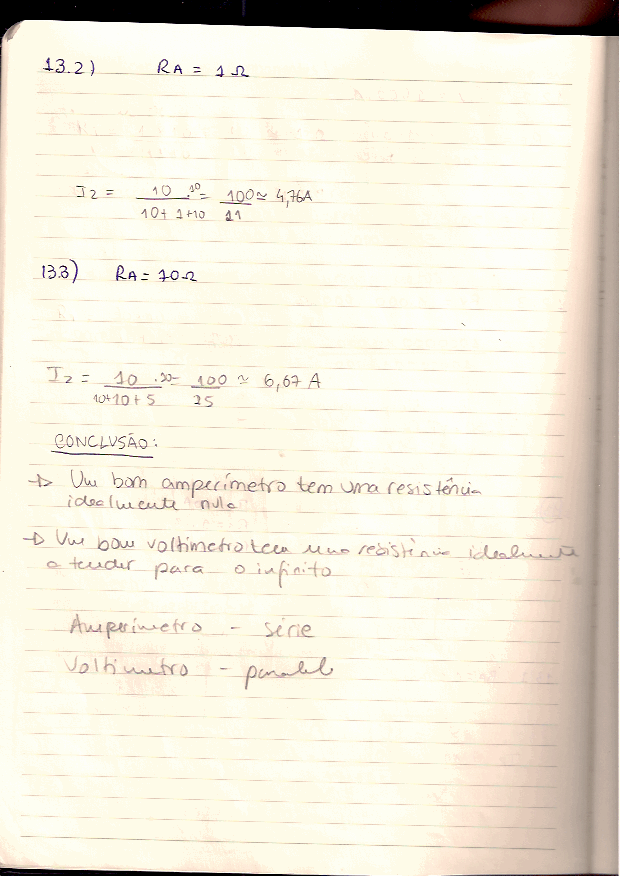 13.2) RA = 1 Ω
I2 = 10/(10+1+10) · 10 = 100/21 ≃ 4,76A
13.3) RA = 10 Ω
I2 = 10/(10+10+5) · 10 = 100/15 ≃ 6,67 A
CONCLUSÃO:
→ Um bom amperímetro tem uma resistência
idealmente nula
→ Um bom voltímetro tem uma resistência idealmente
a tender para o infinito
Amperímetro - série
Voltímetro - paralelo